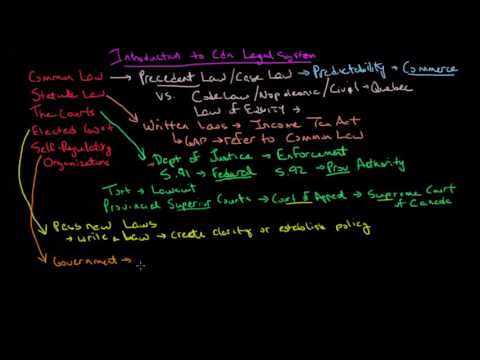 Introduction to Cdn Legal System
Common Law → Precedent Law/Case Law → Predictability → Commerce
Statute Law
VS. Code Law/Napoleonic/Civil → Quebec
The Courts
Law of Equity →
Elected Govt
Written Laws → Income Tax Act
↳ GAP → refer to Common Law
Self-Regulatory
Organizations
Dept of Justice → Enforcement
S.91 → Federal S.92 → Prov Authority
Tort → Lawsuit
Provincial Superior Courts → Court of Appeal → Supreme Court
of Canada
Pass new Laws
→ write a law → create clarity or establish policy
Government →